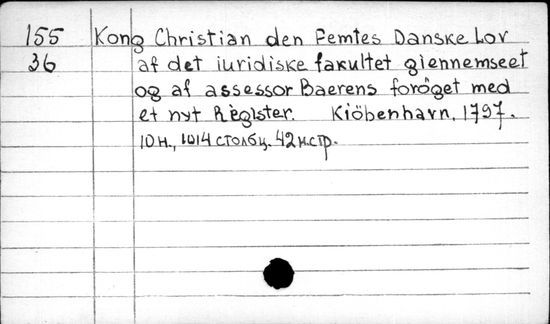 155 Kong Christian den Femtes Danske Lov
36 af det iuridiske fakultet giennemseet
og af assessor Baerens foröget med
et nyt Register. Kiöbenhavn, 1797.
10 н., 1014 столбц. 42 н.стр.